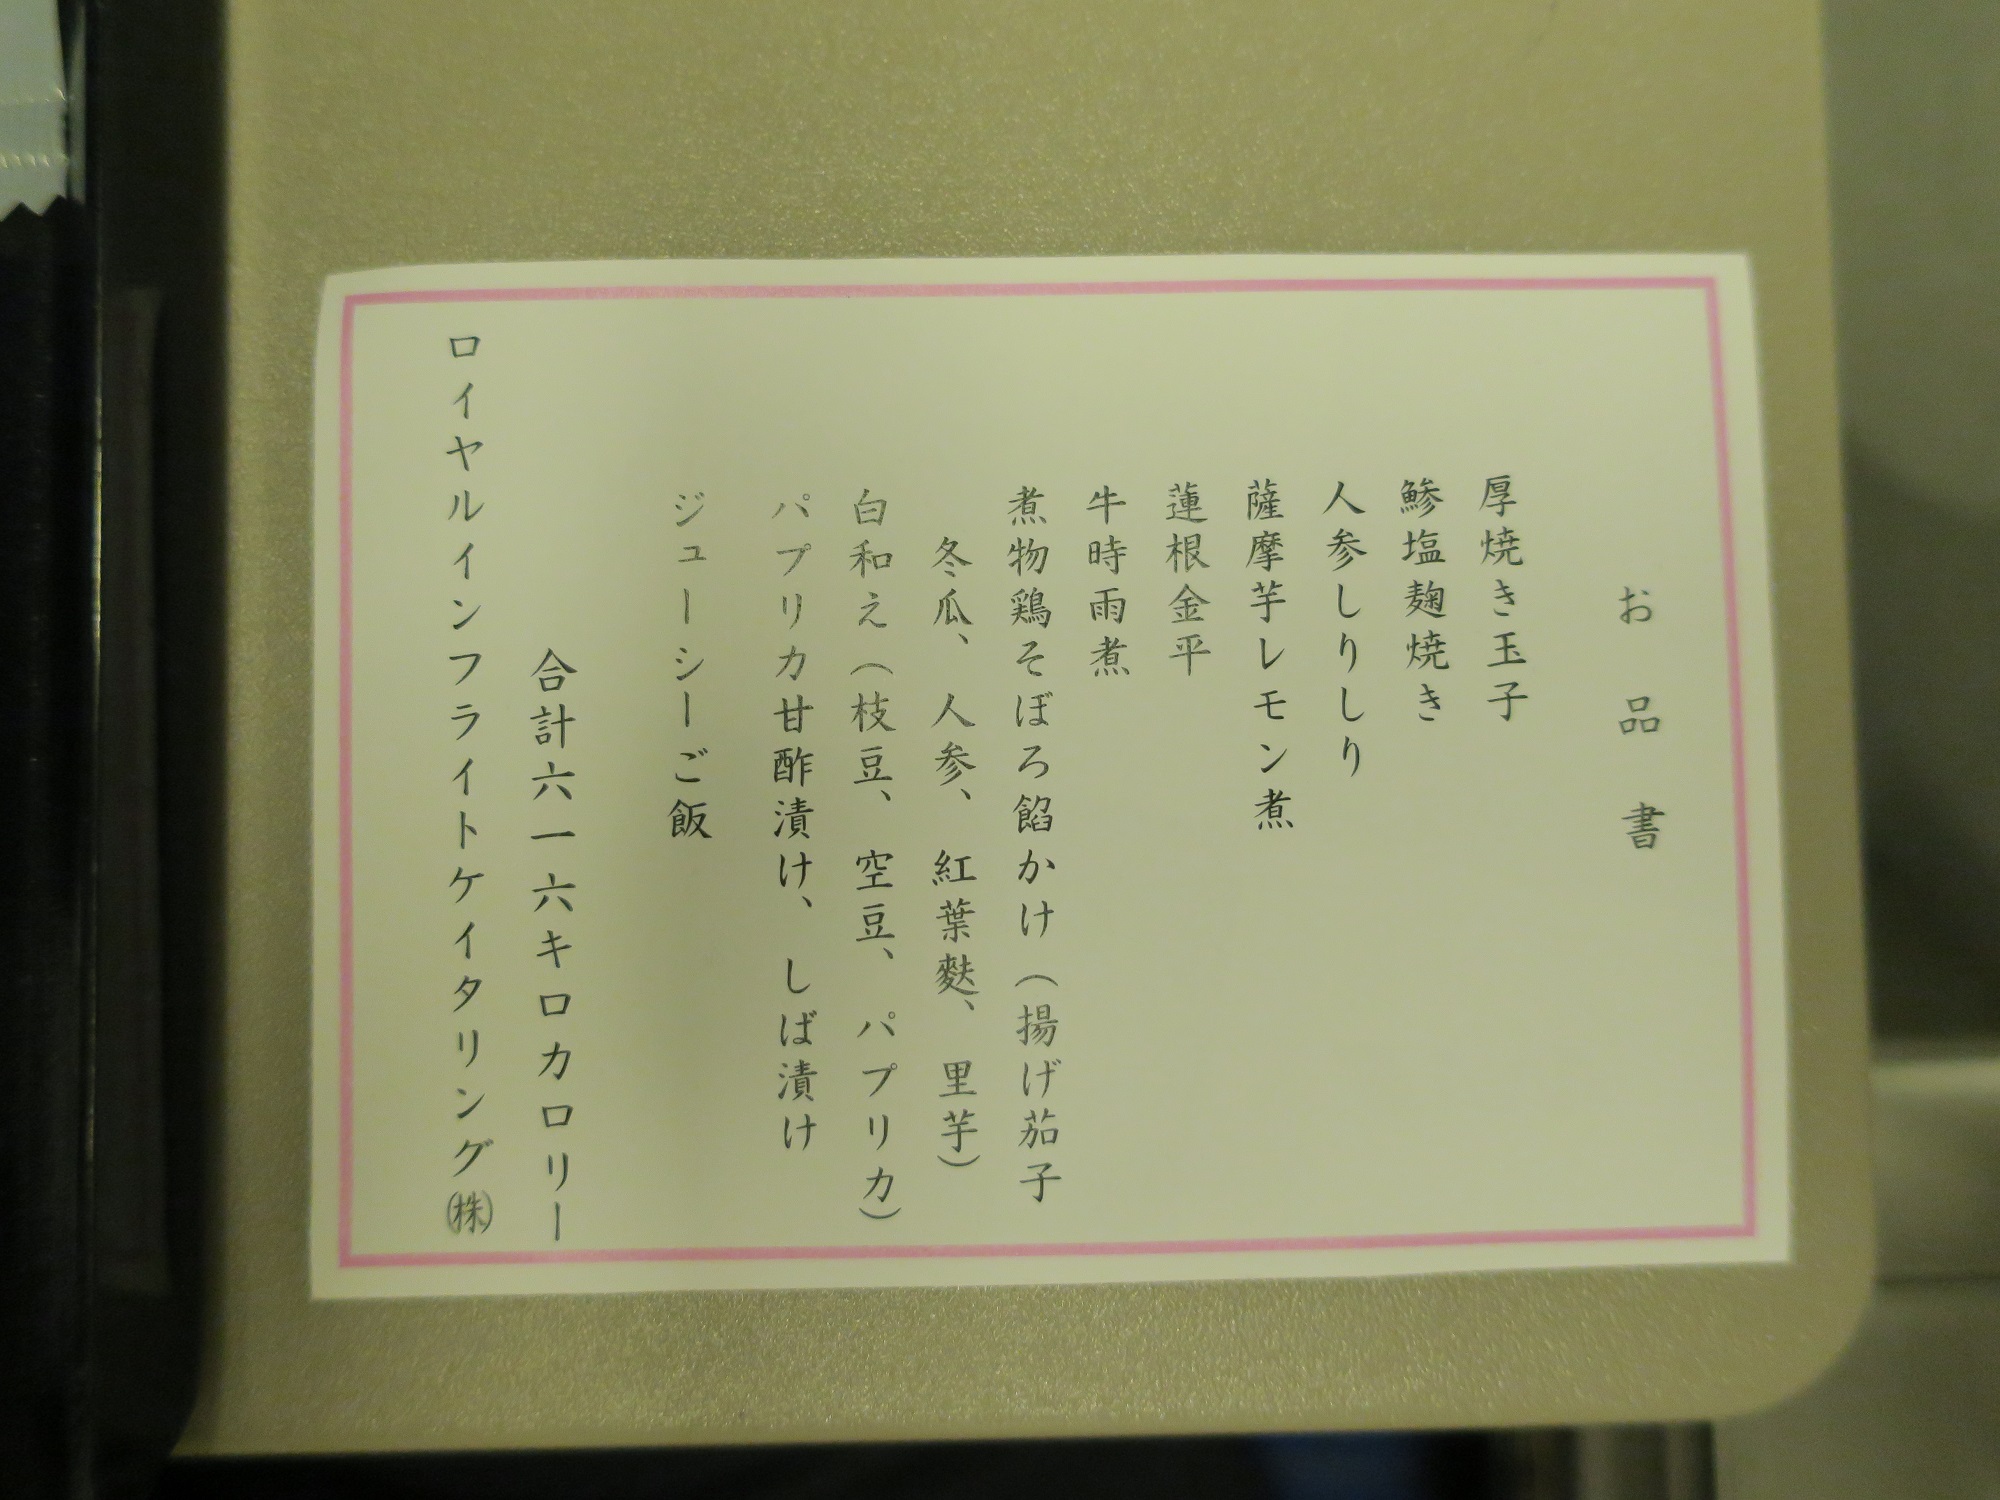 お品書
厚焼き玉子
鯵塩麹焼き
人参しりしり
薩摩芋レモン煮
蓮根金平
牛時雨煮
煮物鶏そぼろ餡かけ（揚げ茄子
冬瓜、人参、紅葉麩、里芋）
白和え（枝豆、空豆、パプリカ）
パプリカ甘酢漬け、しば漬け
ジューシーご飯
合計六一六キロカロリー
ロイヤルインフライトケイタリング㈱